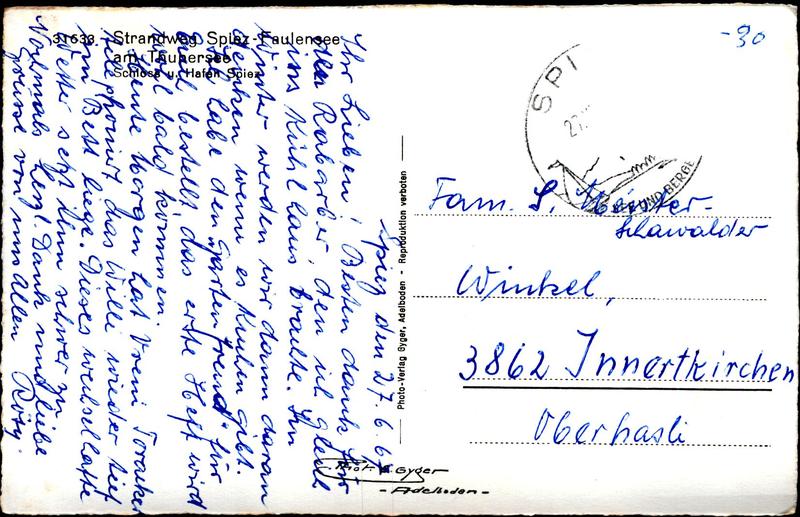 31633 Strandweg Spiez-Faulensee
am Thunersee
Schloss u. Hafen Spiez
Spiez den 27.6.67
Ihr Lieben! Besten Dank für
den Rabarber, den ich gleich
ins Kühlhaus brachte. Im
Winter werden wir dann daran
denken wenn es Kuchen gibt.
Ich habe den "Gartenfreund" für
Euch bestellt, das erste Heft wird
wohl bald kommen.
Heute morgen hat Vreni
telephoniert das Willi wieder tief
im Bett liege. Dieses wechselhafte
Wetter setzt ihm schwer zu.
Nochmals herzl. Dank und liebe
Grüsse von uns Allen Rösy.
Photo-Verlag Gyger, Adelboden - Reproduktion verboten
Phot. E. Gyger
- Adelboden -
-30
SPI
27.
UND BERGE
Fam. S. Meister-
Schawalder
Winkel,
3862 Innertkirchen
Oberhasli